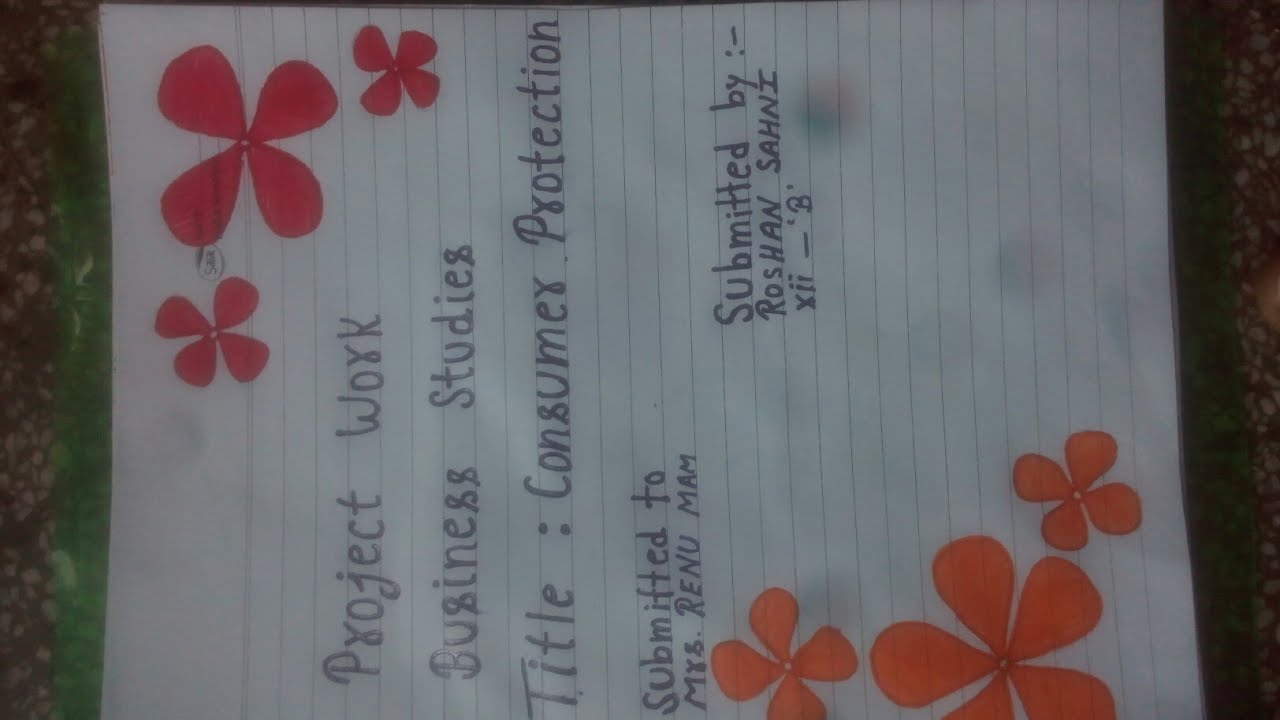 Project Work
Business Studies
Title : Consumer Protection
Submitted to
Mrs. RENU MAM
Submitted by :-
ROSHAN SAHNI
xii – 'B'